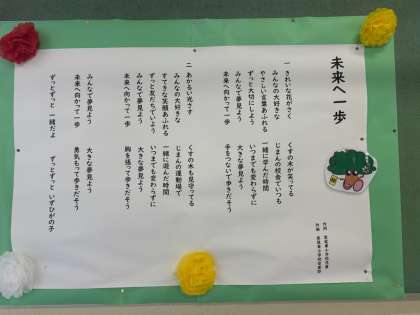 未来へ一歩
一 きれいな花がさく くすの木が笑ってる
みんなの大好きな じまんの校舎でいつも
やさしい言葉あふれる 一緒に学んだ時間
ずっと大切にしよう いつまでも変わらずに
みんなで夢見よう 大きな夢見よう
未来へ向かって一歩 手をつないで歩きだそう
二 あかるい光さす くすの木も見守ってる
みんなの大好きな じまんの運動場で
すてきな笑顔あふれる 一緒に遊んだ時間
ずっと友だちでいよう いつまでも変わらずに
みんなで夢見よう 大きな夢見よう
未来へ向かって一歩 胸を張って歩きだそう
みんなで夢見よう 大きな夢見よう
未来へ向かって一歩 勇気もって歩きだそう
ずっとずっと 一緒だよ ずっとずっと いずひがの子